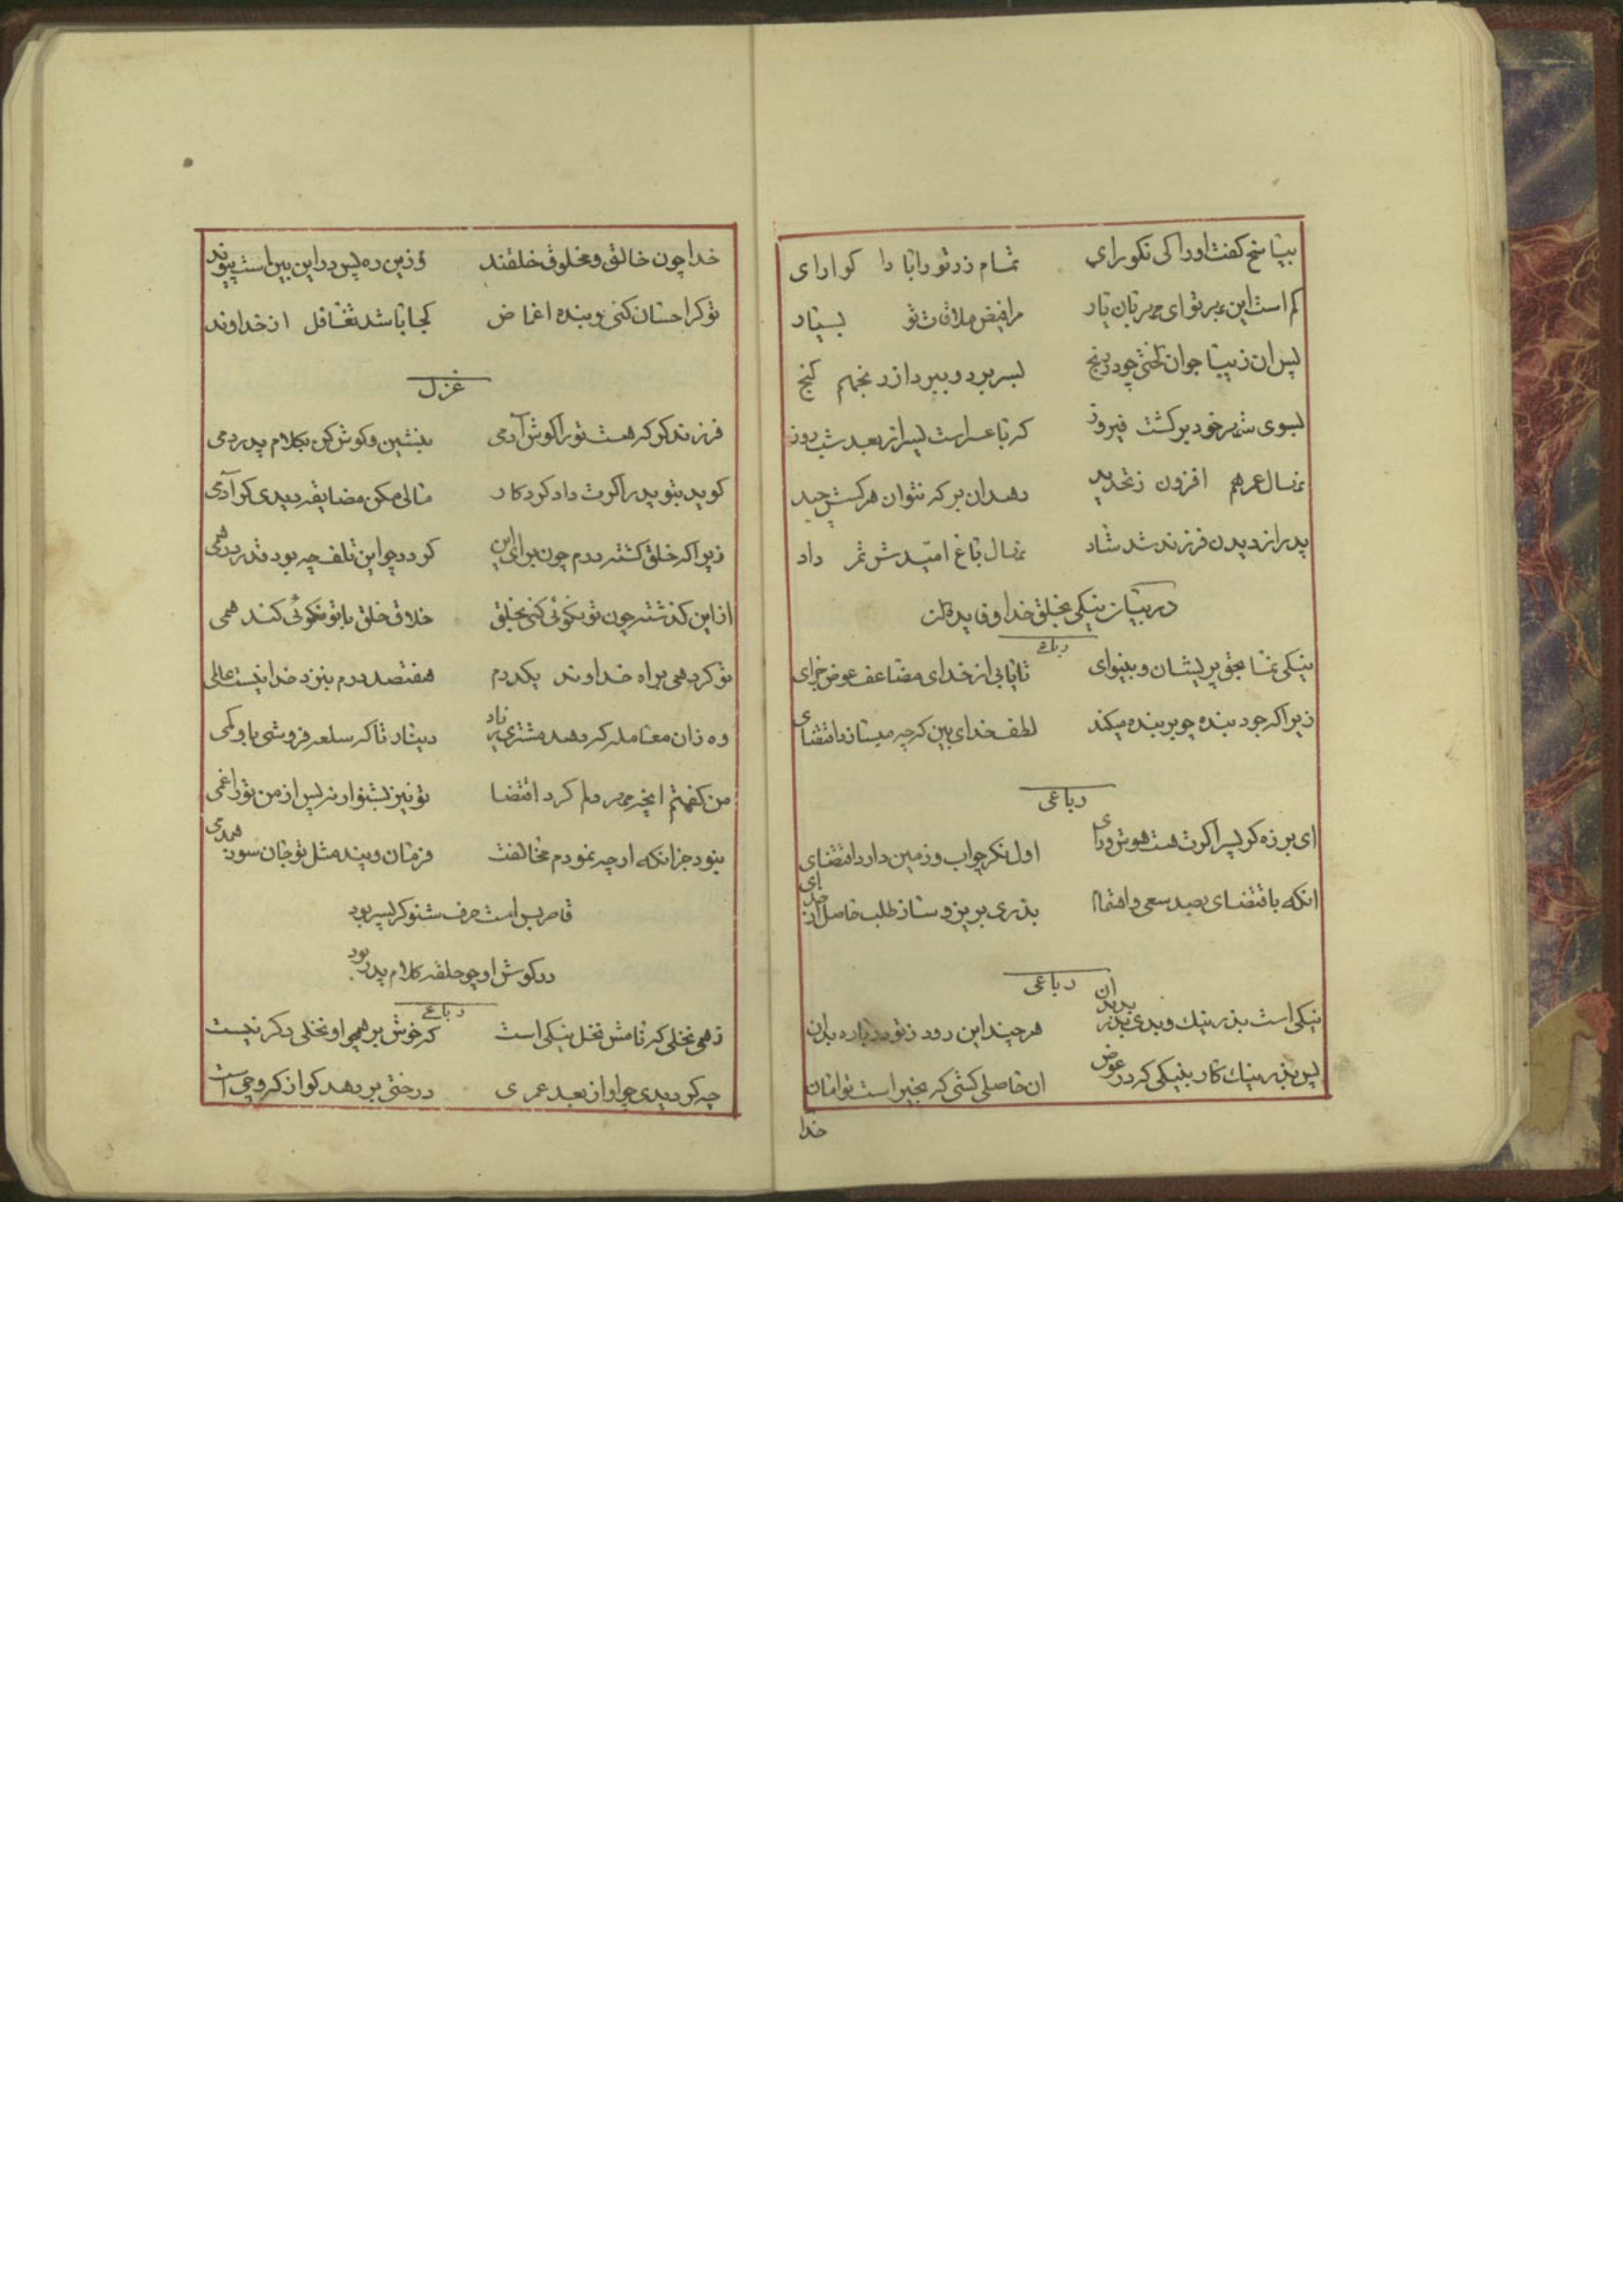 بپاسخ گفت اورا کی نکورای تمام زر تو را بادا کوارای
کم است این بر تو ای مهربان یار مرا فیض ملاقات تو بسیار
پس ان زیبا جوان لختی چو در رنج بسر برد و ببرد از زر بخمم کنج
بسوی شهر خود برکشت فیروز که تا عسر است یسر از بعد شب روز
نهال عمر هم افزون ز تحدید دهد ان بر که نتوان هرکسش چید
پدر از دیدن فرزند شد شاد نهال باغ امیدش ثمر داد
در بیان نیکی بخلق خدا و فایده ان
رباعی
نیکی نما بحق پریشان و بینوای تا یابی از خدای مضاعف عوض جزای
زیرا که جود بنده چو بر بنده میکند لطف خدای بین که چه میسازد اقتضای
رباعی
ای برزه کو پسر اکرت هست هوش و رای اول نکر چو اب و زمین دارد اقتضای
انکه باقتضای بصد سعی و اهتمام بذری بریز و ساز طلب حاصل از خدای
رباعی
نیکی است بذر نیک و بدی بذر بد بدان هر چند این رود ز تو در باره بدان
پس بذر نیک کار بنیکی که در عوض ان حاصلی کشی که بخیر است توامان
خدا
خدا چون خالق و مخلوق خلقند وزین ره پس در این بین است پیوند
تو کر احسان کنی و بنده اغماض کجا باشد تغافل از خداوند
غزل
فرزند کو که هست تو را کوش آدمی بنشین و کوش کن بکلام پدر دمی
کوید بتو پدر اکرت داد کردکار مالی مکن مضایقه دیدی کر آدمی
زیرا که خلق کشته درم چون برای این کردد چو این تلف چه بود قدر درهمی
از این کذشته چون تو نکوئی کنی بخلق خلاق خلق با تو نکوئی کند همی
تو کر دهی براه خداوند یکدرم هفتصد درم بنزد خدا نیست عالی
وه زان معامله که دهد مشتری زیاد دینار تا که سلعه فروشی باو کمی
من کفتم انچه مهر دلم کرد اقتضا تو نیز بشنو ار نه پس از من تو را غمی
نبود جز انکه ارچه نمودم مخالفت فرمان و پند مثل تو جان سوز همدمی
قاصر بس است حرف شنو کر پسر بود
در کوش او چو حلقه کلام پدر بود
رباعی
زهی نخلی که نامش نخل نیکی است که خوش بر همچو او نخلی دکر نیست
چه کر دیدی چو او از بعد عمری درختی بر دهد کو از کروچی است